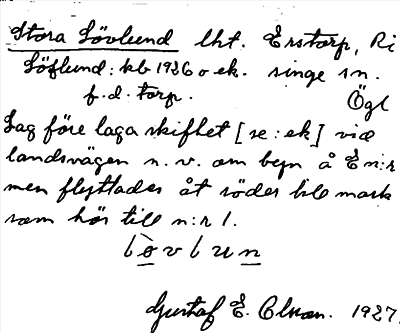 Stora Lövlund lht. Erstorp, Ri
Löflund: kb 1926 o ek. singe sn.
f.d. torp. Ögl
Låg före laga skiftet [se: ek] vid
landsvägen n.v. om byn å E n:r
men flyttades åt söder till mark
som hör till n:r 1.
lòvlun
Gustaf E. Olson. 1927.